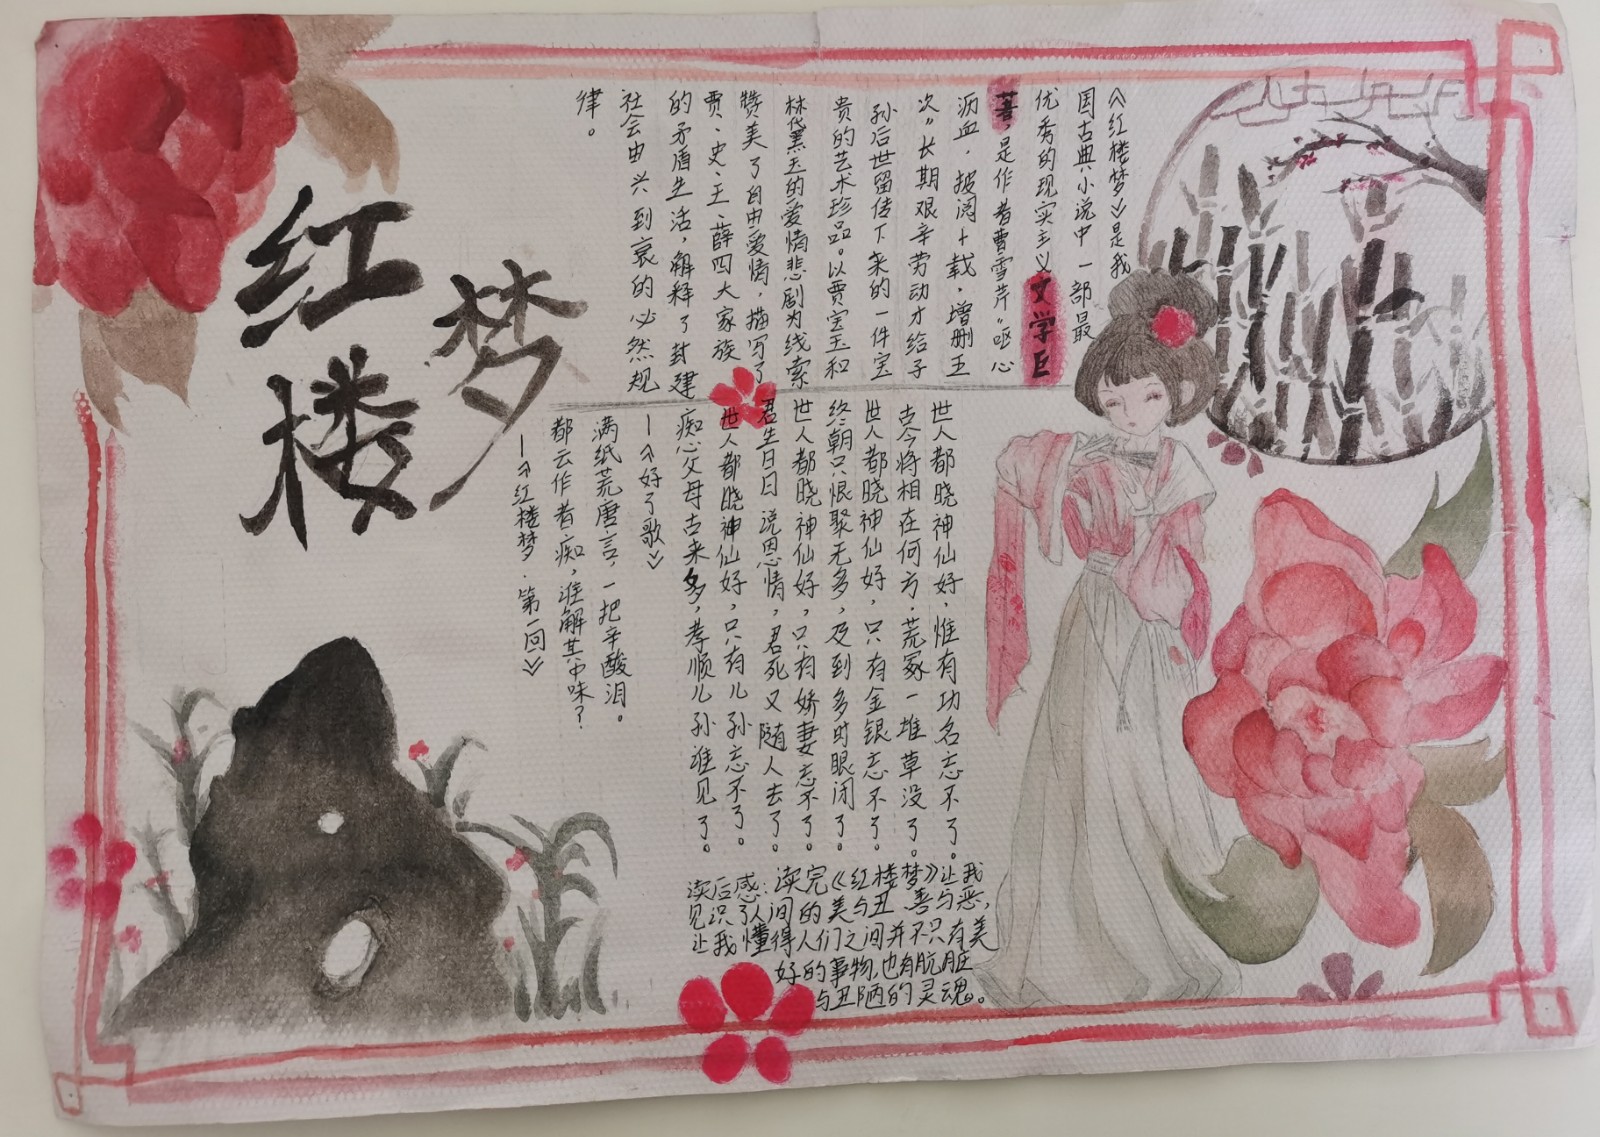 红楼梦
《红楼梦》是我
国古典小说中一部最
优秀的现实主义文学巨
著，是作者曹雪芹“呕心
沥血，披阅十载，增删五
次”长期艰辛劳动才给子
孙后世留传下来的一件宝
贵的艺术珍品。以贾宝玉和
林黛玉的爱情悲剧为线索
赞美了自由爱情，描写了
贾、史、王、薛四大家族
的矛盾生活，解释了封建
社会由兴到衰的必然规
律。
世人都晓神仙好，惟有功名忘不了。
古今将相在何方，荒冢一堆草没了。
世人都晓神仙好，只有金银忘不了。
终朝只恨聚无多，及到多时眼闭了。
世人都晓神仙好，只有娇妻忘不了。
君生日日说恩情，君死又随人去了。
世人都晓神仙好，只有儿孙忘不了。
痴心父母古来多，孝顺儿孙谁见了。
—《好了歌》
满纸荒唐言，一把辛酸泪。
都云作者痴，谁解其中味？
—《红楼梦·第一回》
读后感：读完《红楼梦》让我
见识了人间的美与丑、善与恶，
让我懂得人们之间并不只有美
好的事物，也有肮脏
与丑陋的灵魂。